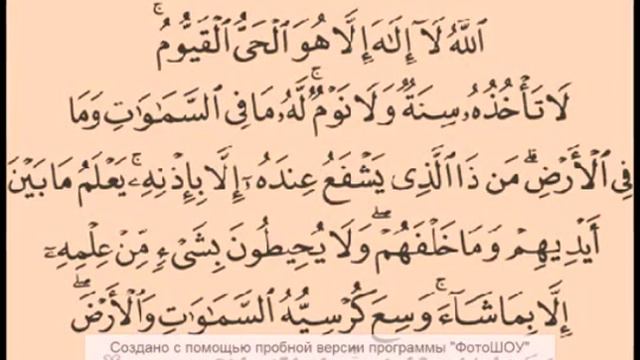 ٱللَّهُ لَآ إِلَٰهَ إِلَّا هُوَ ٱلْحَىُّ ٱلْقَيُّومُ ۚ
لَا تَأْخُذُهُۥ سِنَةٌ وَلَا نَوْمٌ ۚ لَّهُۥ مَا فِى ٱلسَّمَٰوَٰتِ وَمَا
فِى ٱلْأَرْضِ ۗ مَن ذَا ٱلَّذِى يَشْفَعُ عِندَهُۥٓ إِلَّا بِإِذْنِهِۦ ۚ يَعْلَمُ مَا بَيْنَ
أَيْدِيهِمْ وَمَا خَلْفَهُمْ ۖ وَلَا يُحِيطُونَ بِشَىْءٍ مِّنْ عِلْمِهِۦٓ
إِلَّا بِمَا شَآءَ ۚ وَسِعَ كُرْسِيُّهُ ٱلسَّمَٰوَٰتِ وَٱلْأَرْضَ ۖ
Создано с помощью пробной версии программы "ФотоШОУ"